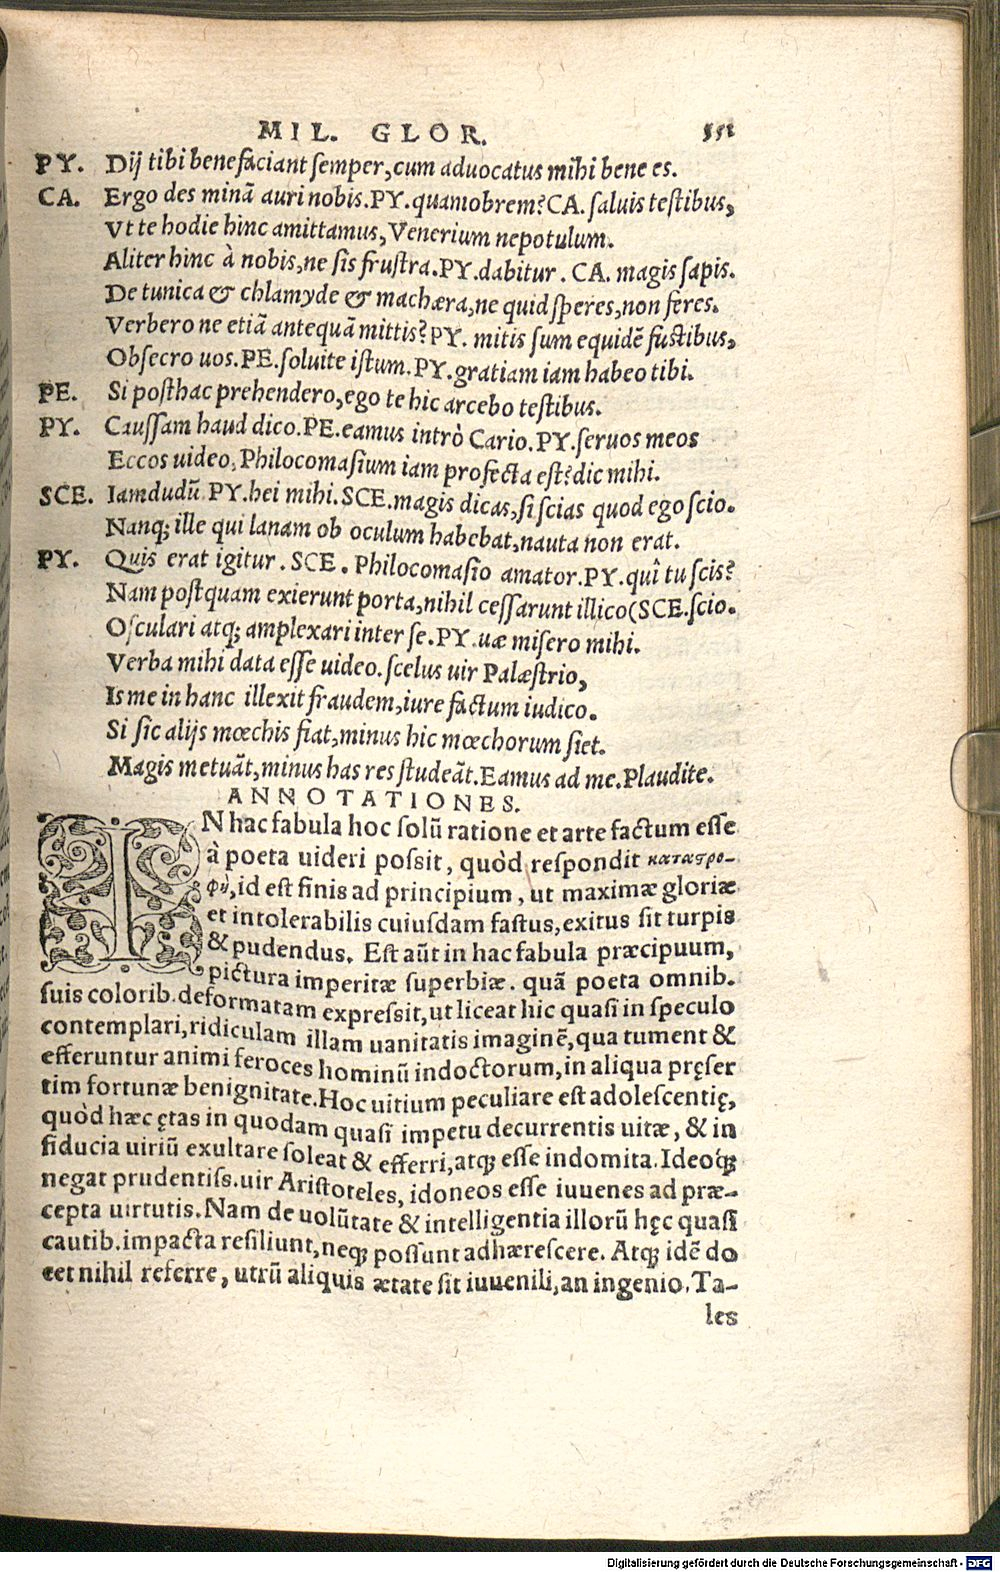 MIL. GLOR. 551
PY. Dij tibi benefaciant semper, cum advocatus mihi bene es.
CA. Ergo des minã auri nobis. PY. quamobrem? CA. saluis testibus,
Vt te hodie hinc amittamus, Venerium nepotulum.
Aliter hinc à nobis, ne sis frustra. PY. dabitur. CA. magis sapis.
De tunica & chlamyde & machæra, ne quid speres, non feres.
Verbero ne etiã antequã mittis? PY. mitis sum equidẽ fustibus,
Obsecro uos. PE. soluite istum. PY. gratiam iam habeo tibi.
PE. Si posthac prehendero, ego te hic arcebo testibus.
PY. Caussam haud dico. PE. eamus intrò Cario. PY. seruos meos
Eccos uideo, Philocomasium iam profecta est? dic mihi.
SCE. Iamdudũ PY. hei mihi. SCE. magis dicas, si scias quod ego scio.
Nanq; ille qui lanam ob oculum habebat, nauta non erat.
PY. Quis erat igitur. SCE. Philocomasio amator. PY. quî tu scis?
Nam postquam exierunt porta, nihil cessarunt illico (SCE. scio.
Osculari atq; amplexari inter se. PY. uæ misero mihi.
Verba mihi data esse uideo. scelus uir Palæstrio,
Is me in hanc illexit fraudem, iure factum iudico.
Si sic alijs mœchis fiat, minus hic mœchorum siet.
Magis metuãt, minus has res studeãt. Eamus ad me. Plaudite.
ANNOTATIONES.
IN hac fabula hoc solũ ratione et arte factum esse
à poeta uideri possit, quòd respondit καταστρο-
φῇ, id est finis ad principium, ut maximæ gloriæ
et intolerabilis cuiusdam fastus, exitus sit turpis
& pudendus. Est aũt in hac fabula præcipuum,
pictura imperitæ superbiæ. quã poeta omnib.
suis colorib. deformatam expressit, ut liceat hic quasi in speculo
contemplari, ridiculam illam uanitatis imaginẽ, qua tument &
efferuntur animi feroces hominũ indoctorum, in aliqua pręser
tim fortunæ benignitate. Hoc uitium peculiare est adolescentię,
quòd hæc ętas in quodam quasi impetu decurrentis uitæ, & in
fiducia uiriũ exultare soleat & efferri, atq; esse indomita. Ideoq́;
negat prudentiss. uir Aristoteles, idoneos esse iuuenes ad præ-
cepta uirtutis. Nam de uolũtate & intelligentia illorũ hęc quasi
cautib. impacta resiliunt, neq; possunt adhærescere. Atq; idẽ do
cet nihil referre, utrũ aliquis ætate sit iuuenili, an ingenio. Ta-
les
Digitalisierung gefördert durch die Deutsche Forschungsgemeinschaft - DFG